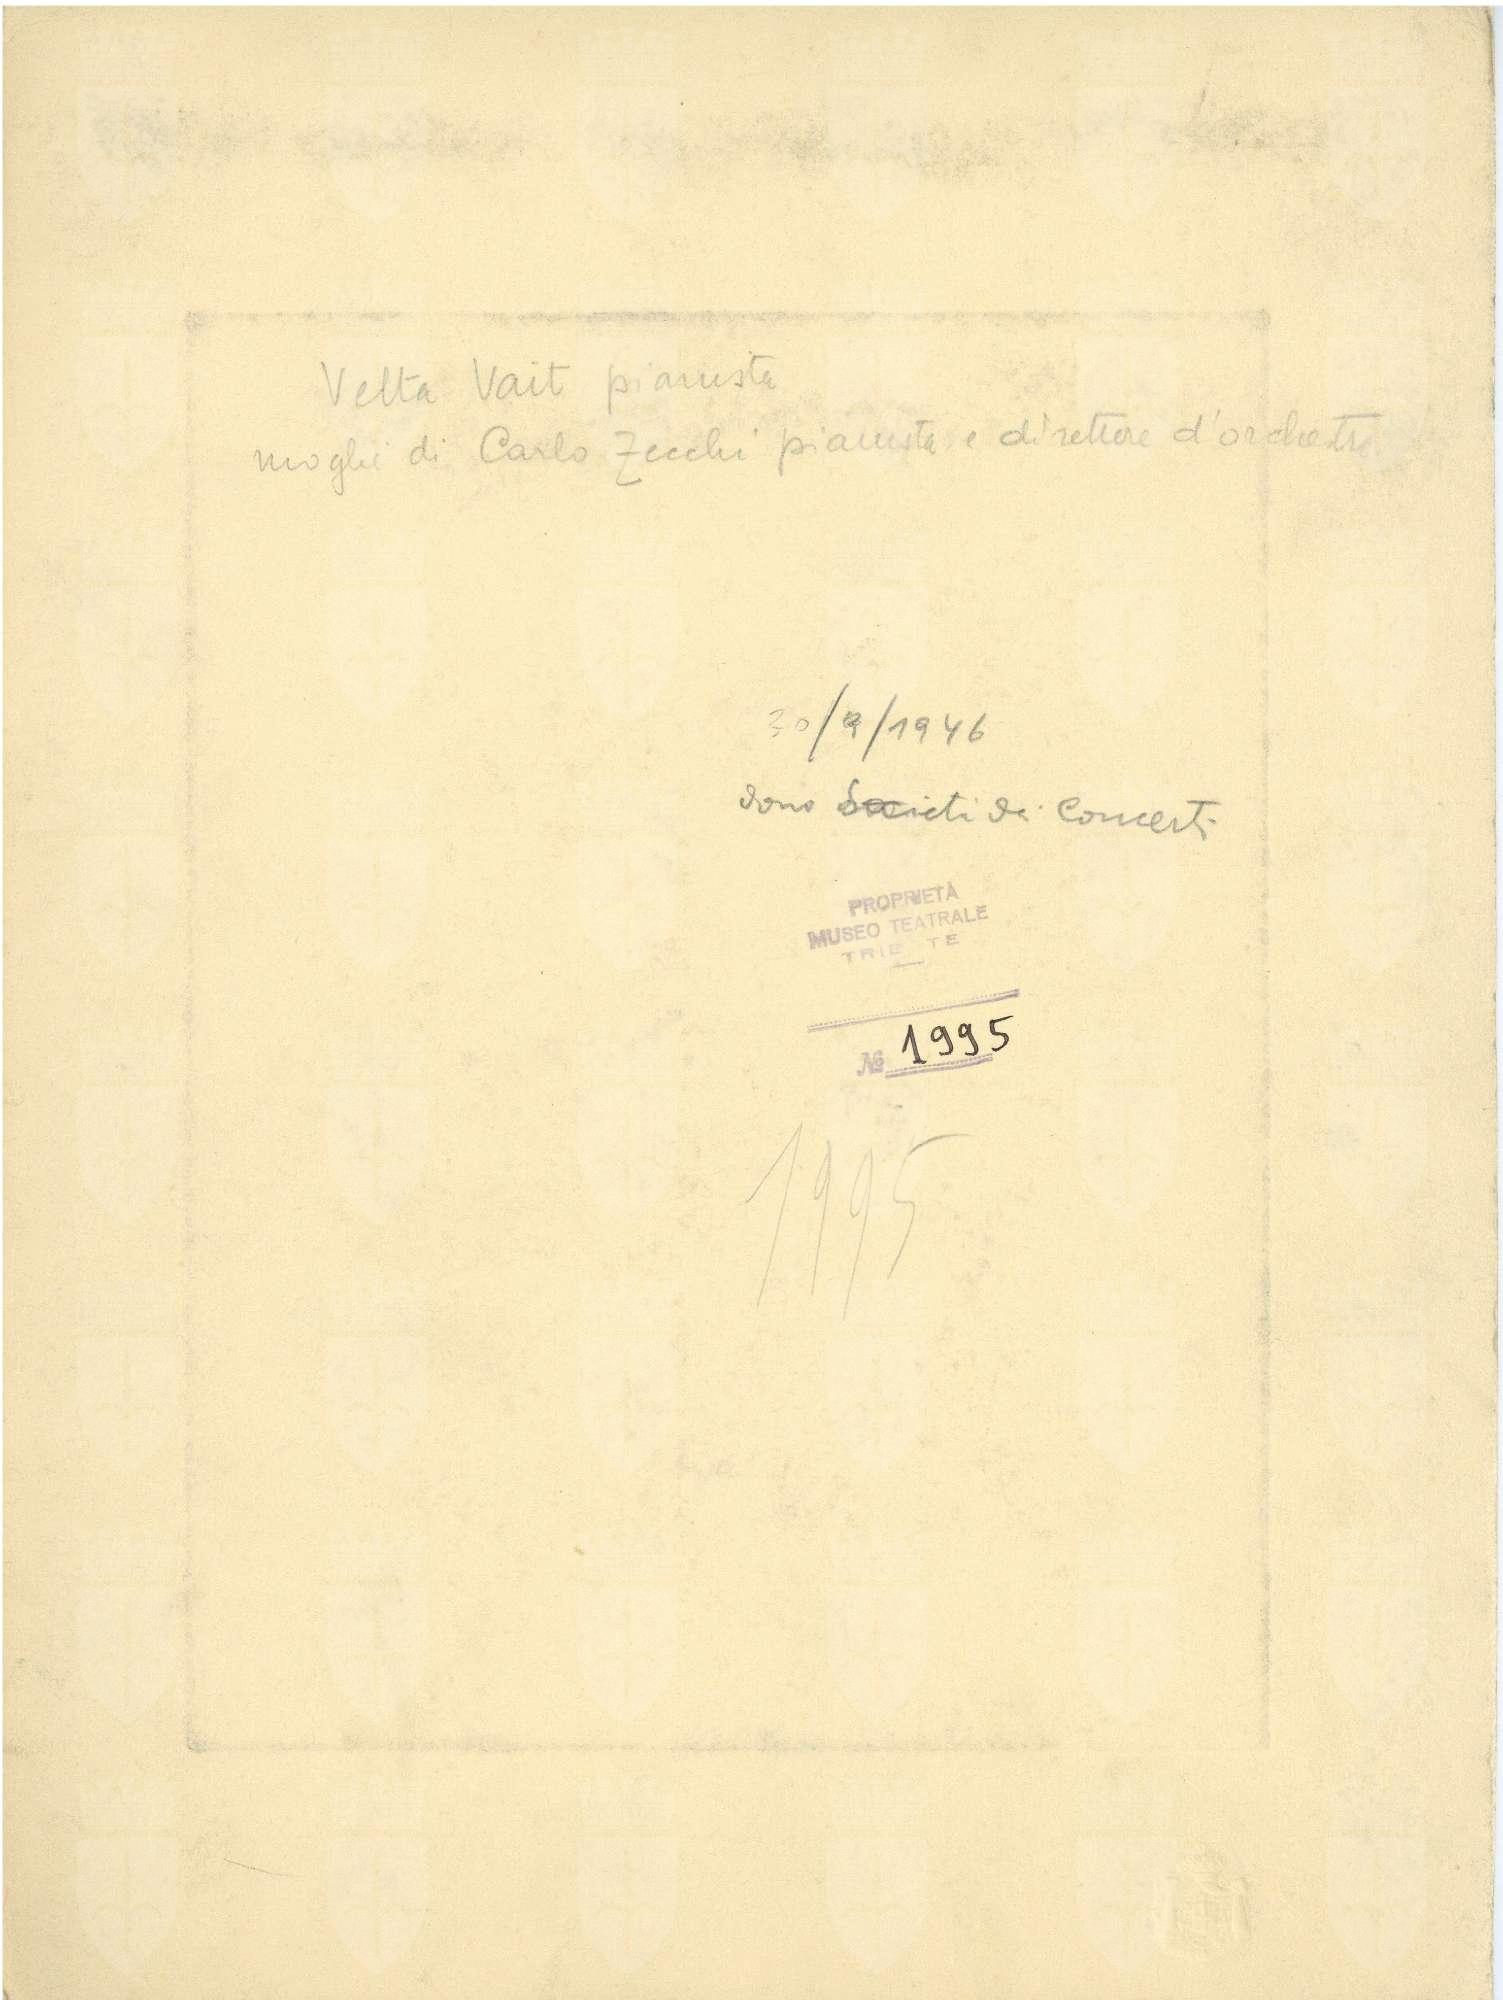 Velta Vait pianista
moglie di Carlo Zecchi pianista e direttore d'orchestr
30/9/1946
dono Società dei Concerti
PROPRIETÀ
MUSEO TEATRALE
TRIE TE
№ 1995
1995